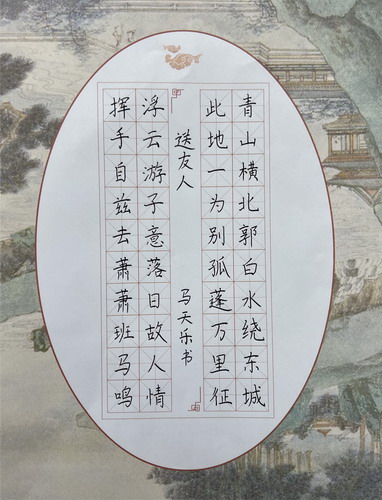 青山横北郭白水绕东城
此地一为别孤蓬万里征
送友人
马天乐书
浮云游子意落日故人情
挥手自兹去萧萧班马鸣